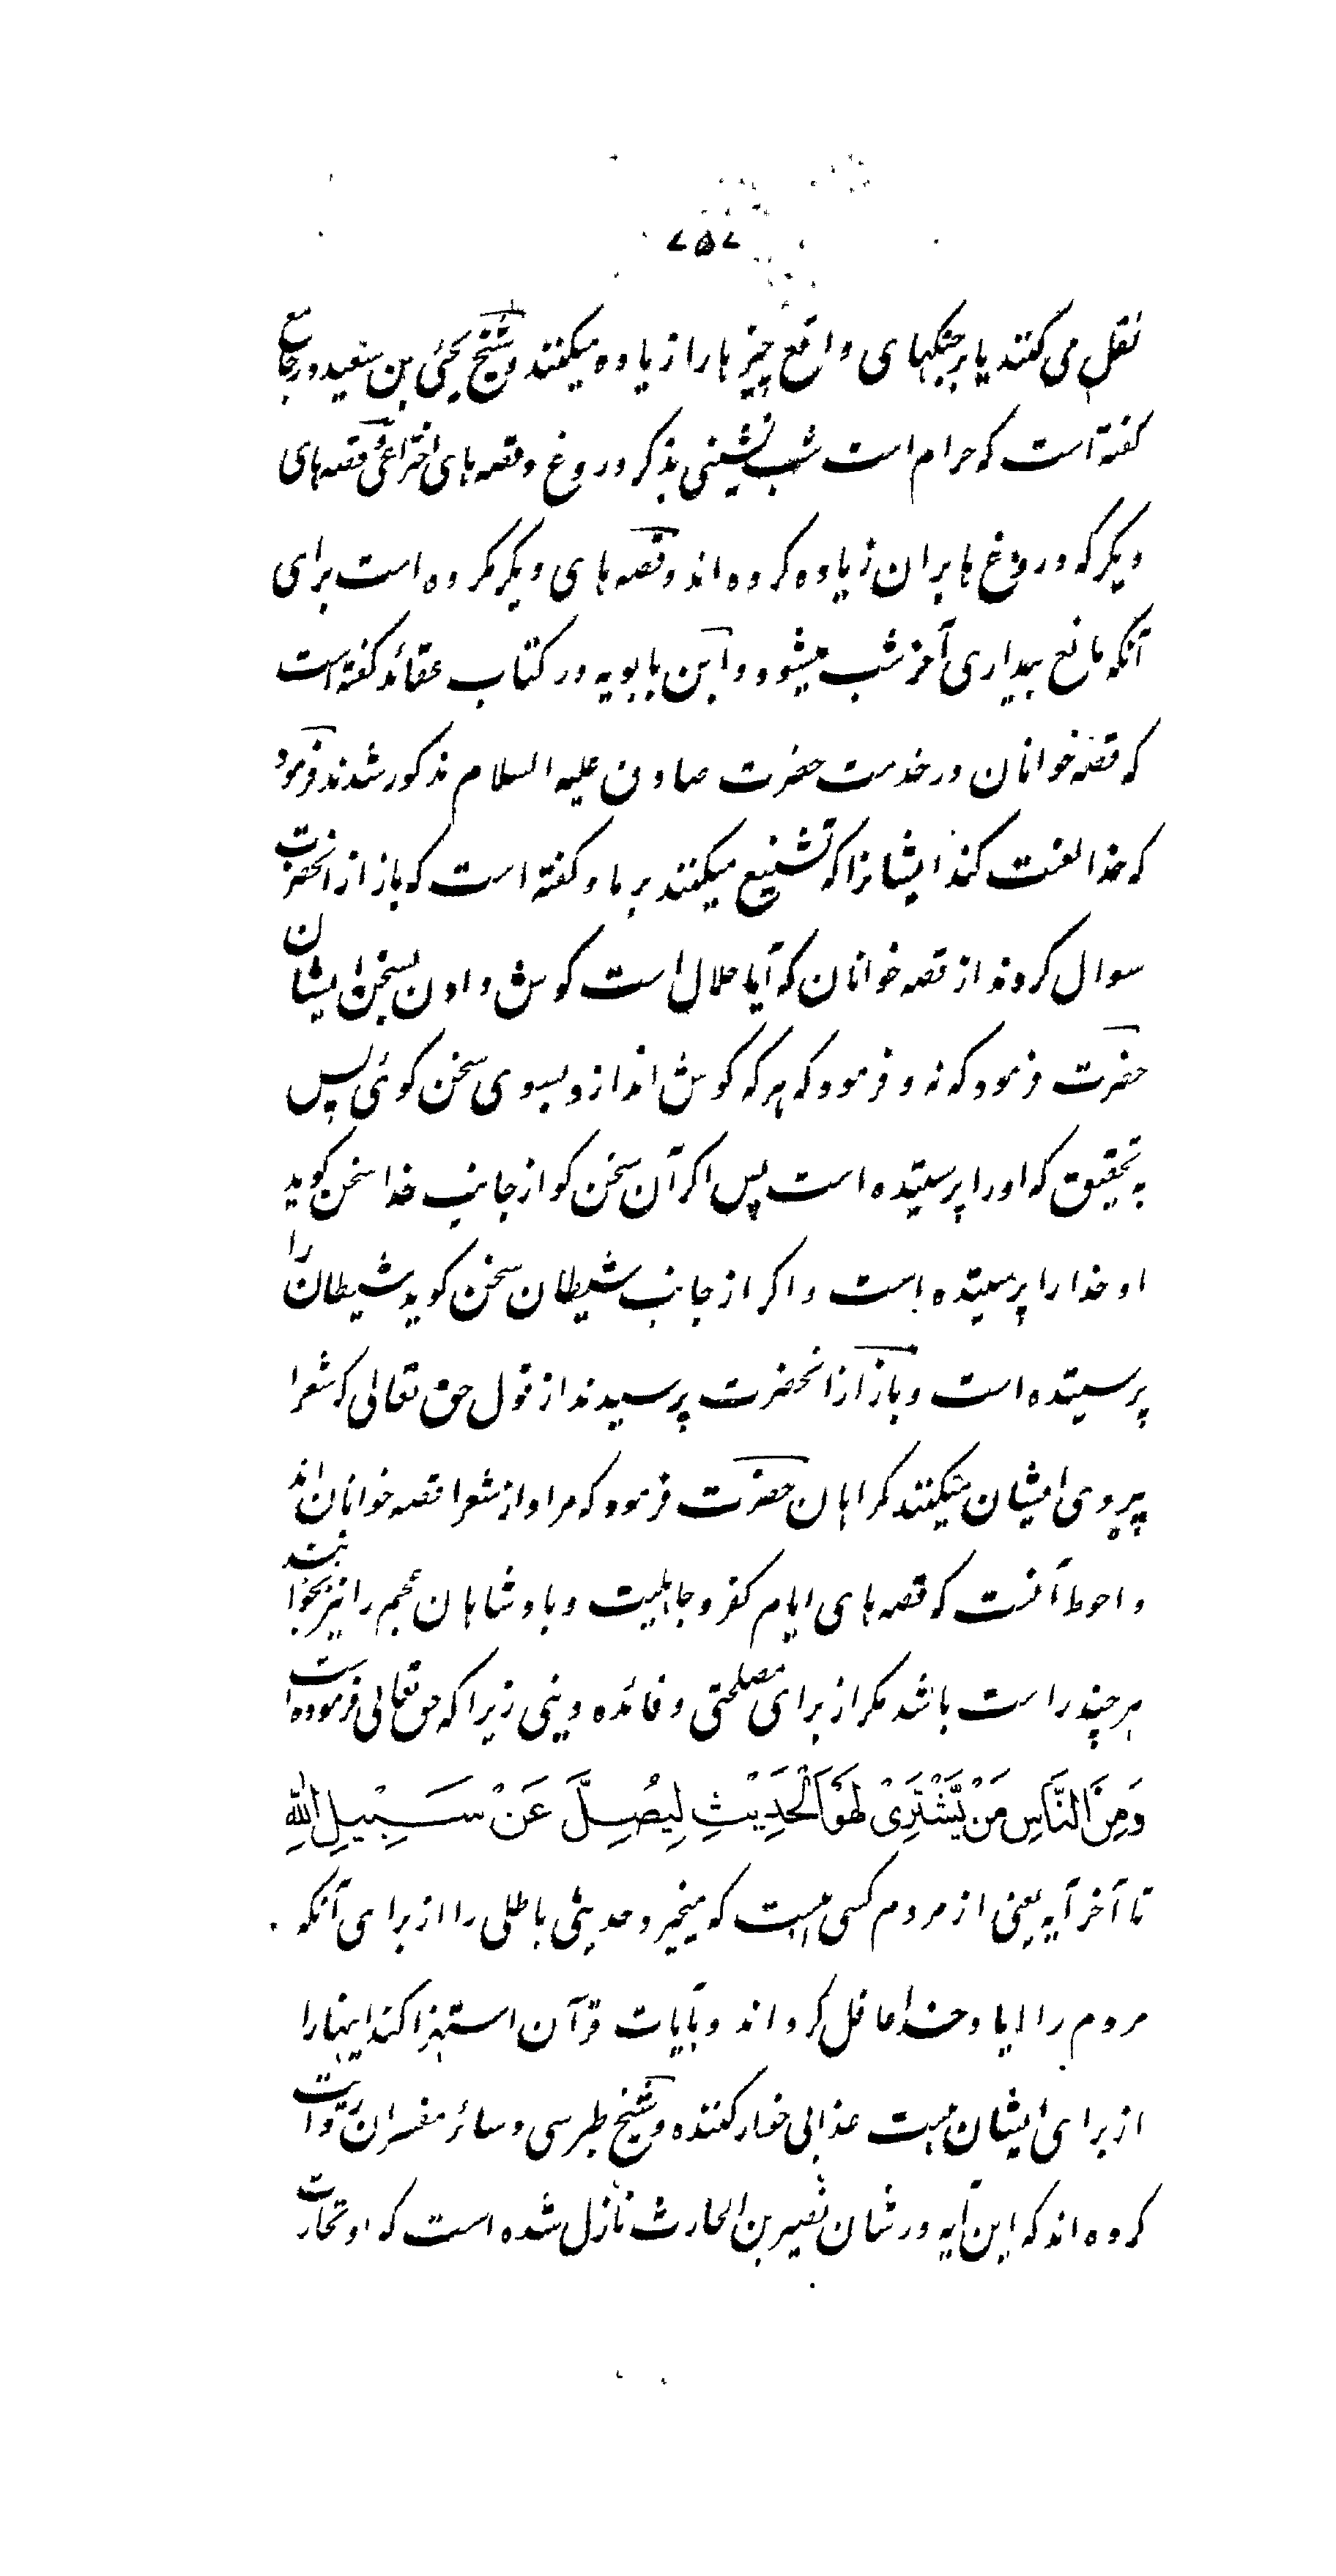 ۷۵۷
نقل می کنند یا برجنگهای واقع چیز ها را زیاده میکنند و شیخ یحیی بن سعید در جامع
گفته است که حرام است شب نشینی بذکر دروغ و قصه های اختراعی و قصه های
دیگر که دروغ ها بران زیاده کرده اند و قصه های دیگر مکروه است برای
آنکه مانع بیداری آخر شب میشود و ابن بابویه در کتاب عقائد گفته است
که قصه خوانان در خدمت حضرت صادق علیه السلام مذکور شدند فرمود
که خدا لعنت کند ایشانرا که تشنیع میکنند بر ما و گفته است که باز از انحضرت
سوال کردند از قصه خوانان که آیا حلال است گوش دادن بسخن ایشان
حضرت فرمود که نه و فرمود که هر که گوش اندازد بسوی سخن گوئی پس
به تحقیق که او را پرستیده است پس اگر آن سخن گو از جانب خدا سخن گوید
او خدا را پرستیده است و اگر از جانب شیطان سخن گوید شیطان را
پرستیده است و باز ازانحضرت پرسیدند از قول حق تعالی که شعرا
پیروی ایشان میکنند گمراهان حضرت فرمود که مراد از شعرا قصه خوانان اند
و احوط آنست که قصه های ایام کفر و جاهلیت و بادشاهان عجم را نیز نخوانند
هر چند راست باشد مگر از برای مصلحتی و فائده دینی زیرا که حق تعالی فرموده است
وَمِنَ النَّاسِ مَنْ يَّشْتَرِىْ لَهْوَ الْحَدِيْثِ لِيُضِلَّ عَنْ سَبِيْلِ اللّٰهِ
تا آخر آیه یعنی از مردم کسی هست که میخرد حدیثی باطلی را از برای آنکه
مردم را از یاد خدا غافل گرداند و بآیات قرآن استهزا کند اینها را
از برای ایشان هست عذابی خوار کننده و شیخ طبرسی و سائر مفسران روایت
کرده اند که این آیه در شان نضیر بن الحارث نازل شده است که او تجارت